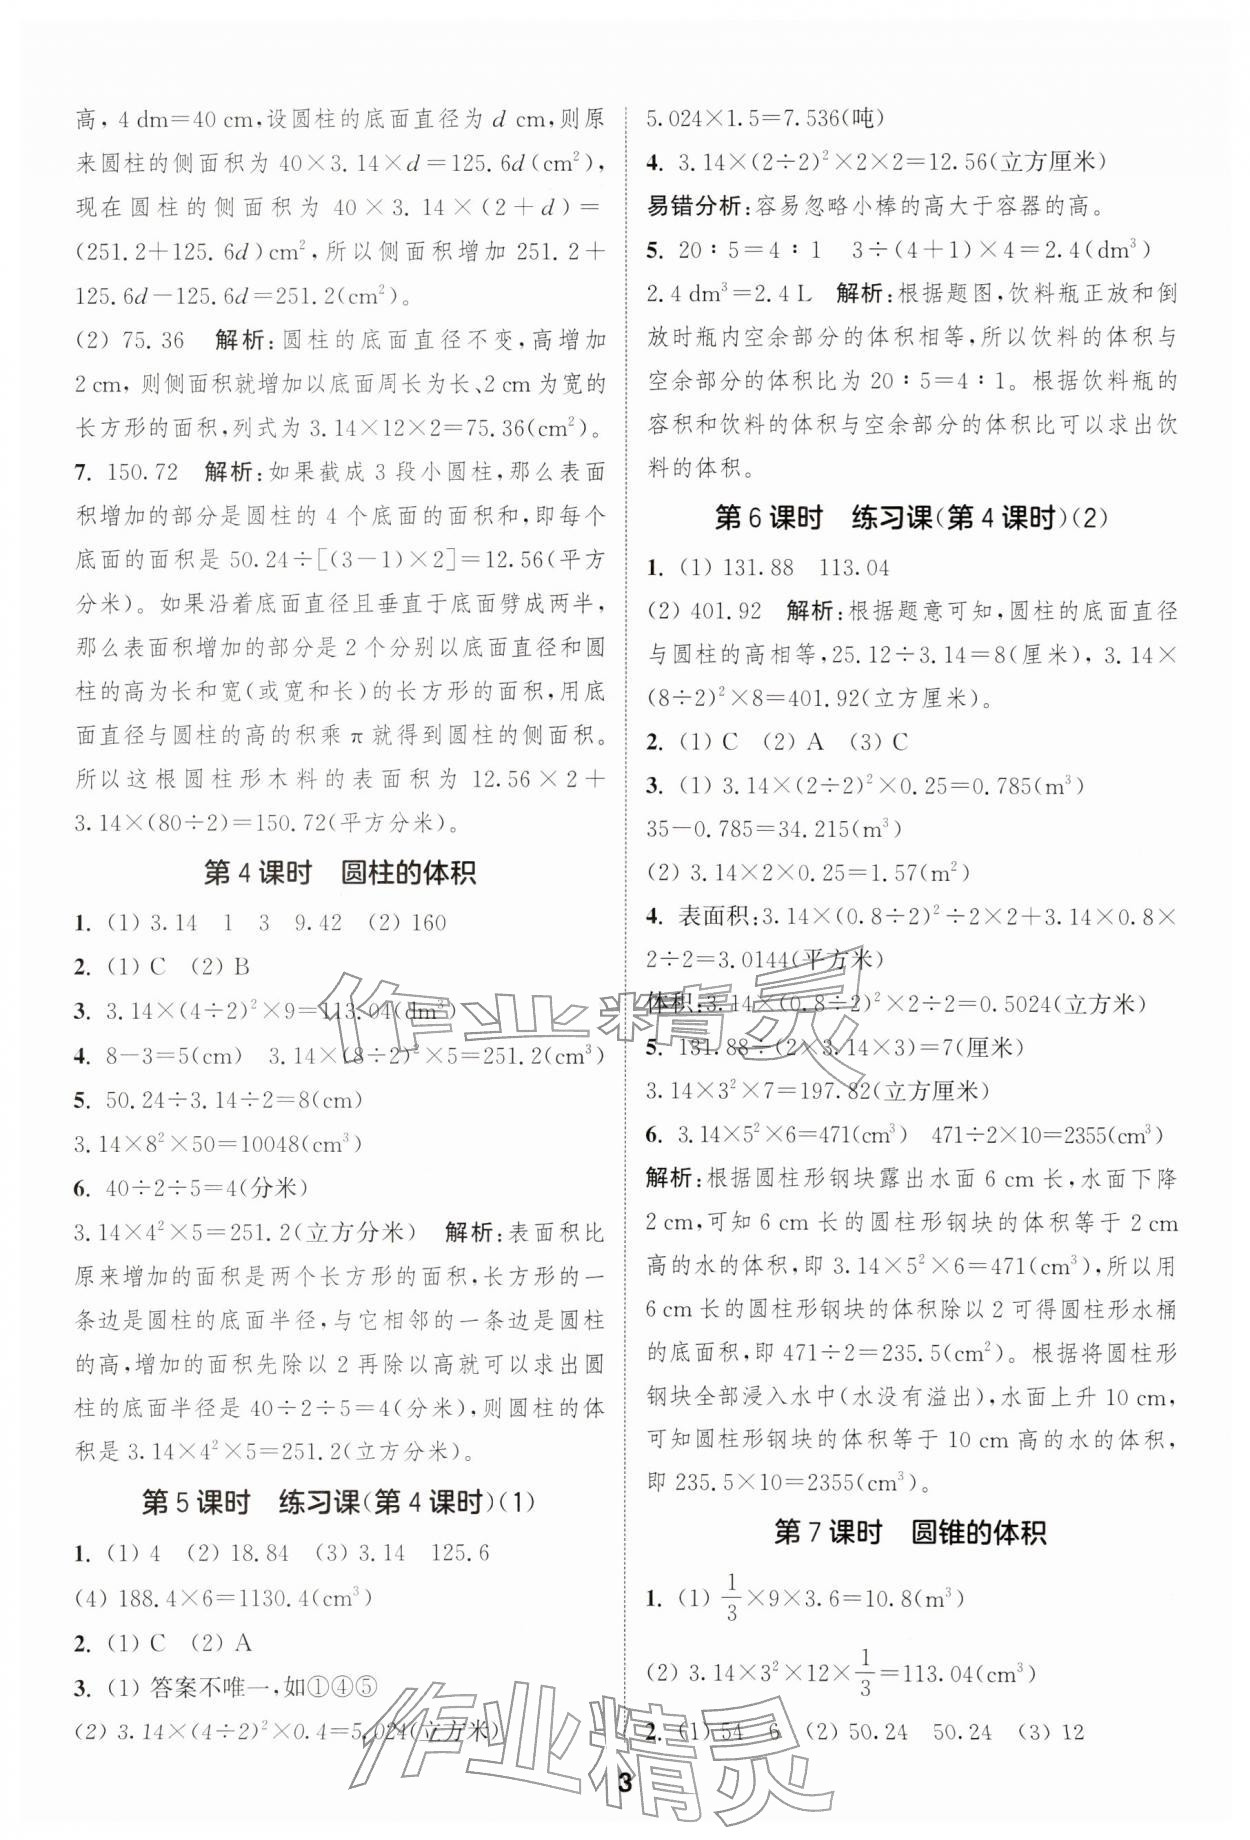 高,4 dm=40 cm,设圆柱的底面直径为 d cm,则原
来圆柱的侧面积为 40×3.14×d=125.6d(cm²),
现在圆柱的侧面积为 40×3.14×(2+d)=
(251.2+125.6d)cm²,所以侧面积增加 251.2+
125.6d-125.6d=251.2(cm²)。
(2) 75.36 解析:圆柱的底面直径不变,高增加
2 cm, 则侧面积就增加以底面周长为长、2 cm 为宽的
长方形的面积,列式为 3.14×12×2=75.36(cm²)。
7. 150.72 解析:如果截成 3 段小圆柱,那么表面
积增加的部分是圆柱的 4 个底面的面积和,即每个
底面的面积是 50.24÷[(3-1)×2]=12.56(平方
分米)。如果沿着底面直径且垂直于底面劈成两半,
那么表面积增加的部分是 2 个分别以底面直径和圆
柱的高为长和宽(或宽和长)的长方形的面积,用底
面直径与圆柱的高的积乘 π 就得到圆柱的侧面积。
所以这根圆柱形木料的表面积为 12.56×2+
3.14×(80÷2)=150.72(平方分米)。
第 4 课时 圆柱的体积
1. (1) 3.14 1 3 9.42 (2) 160
2. (1) C (2) B
3. 3.14×(4÷2)²×9=113.04(dm³)
4. 8-3=5(cm) 3.14×(8÷2)²×5=251.2(cm³)
5. 50.24÷3.14÷2=8(cm)
3.14×8²×50=10048(cm³)
6. 40÷2÷5=4(分米)
3.14×4²×5=251.2(立方分米) 解析:表面积比
原来增加的面积是两个长方形的面积,长方形的一
条边是圆柱的底面半径,与它相邻的一条边是圆柱
的高,增加的面积先除以 2 再除以高就可以求出圆
柱的底面半径是 40÷2÷5=4(分米),则圆柱的体
积是 3.14×4²×5=251.2(立方分米)。
第 5 课时 练习课(第 4 课时)(1)
1. (1) 4 (2) 18.84 (3) 3.14 125.6
(4) 188.4×6=1130.4(cm³)
2. (1) C (2) A
3. (1) 答案不唯一,如①④⑤
(2) 3.14×(4÷2)²×0.4=5.024(立方米)
5.024×1.5=7.536(吨)
4. 3.14×(2÷2)²×2×2=12.56(立方厘米)
易错分析:容易忽略小棒的高大于容器的高。
5. 20∶5=4∶1 3÷(4+1)×4=2.4(dm³)
2.4 dm³=2.4 L 解析:根据题图,饮料瓶正放和倒
放时瓶内空余部分的体积相等,所以饮料的体积与
空余部分的体积比为 20∶5=4∶1。根据饮料瓶的
容积和饮料的体积与空余部分的体积比可以求出饮
料的体积。
第 6 课时 练习课(第 4 课时)(2)
1. (1) 131.88 113.04
(2) 401.92 解析:根据题意可知,圆柱的底面直径
与圆柱的高相等,25.12÷3.14=8(厘米),3.14×
(8÷2)²×8=401.92(立方厘米)。
2. (1) C (2) A (3) C
3. (1) 3.14×(2÷2)²×0.25=0.785(m³)
35-0.785=34.215(m³)
(2) 3.14×2×0.25=1.57(m²)
4. 表面积:3.14×(0.8÷2)²÷2×2+3.14×0.8×
2÷2=3.0144(平方米)
体积:3.14×(0.8÷2)²×2÷2=0.5024(立方米)
5. 131.88÷(2×3.14×3)=7(厘米)
3.14×3²×7=197.82(立方厘米)
6. 3.14×5²×6=471(cm³) 471÷2×10=2355(cm³)
解析:根据圆柱形钢块露出水面 6 cm 长,水面下降
2 cm,可知 6 cm 长的圆柱形钢块的体积等于 2 cm
高的水的体积,即 3.14×5²×6=471(cm³),所以用
6 cm 长的圆柱形钢块的体积除以 2 可得圆柱形水桶
的底面积,即 471÷2=235.5(cm²)。根据将圆柱形
钢块全部浸入水中(水没有溢出),水面上升 10 cm,
可知圆柱形钢块的体积等于 10 cm 高的水的体积,
即 235.5×10=2355(cm³)。
第 7 课时 圆锥的体积
1. (1) 1/3×9×3.6=10.8(m³)
(2) 3.14×3²×12×1/3=113.04(cm³)
2. (1) 54 6 (2) 50.24 50.24 (3) 12
3
作业精灵
作业精灵